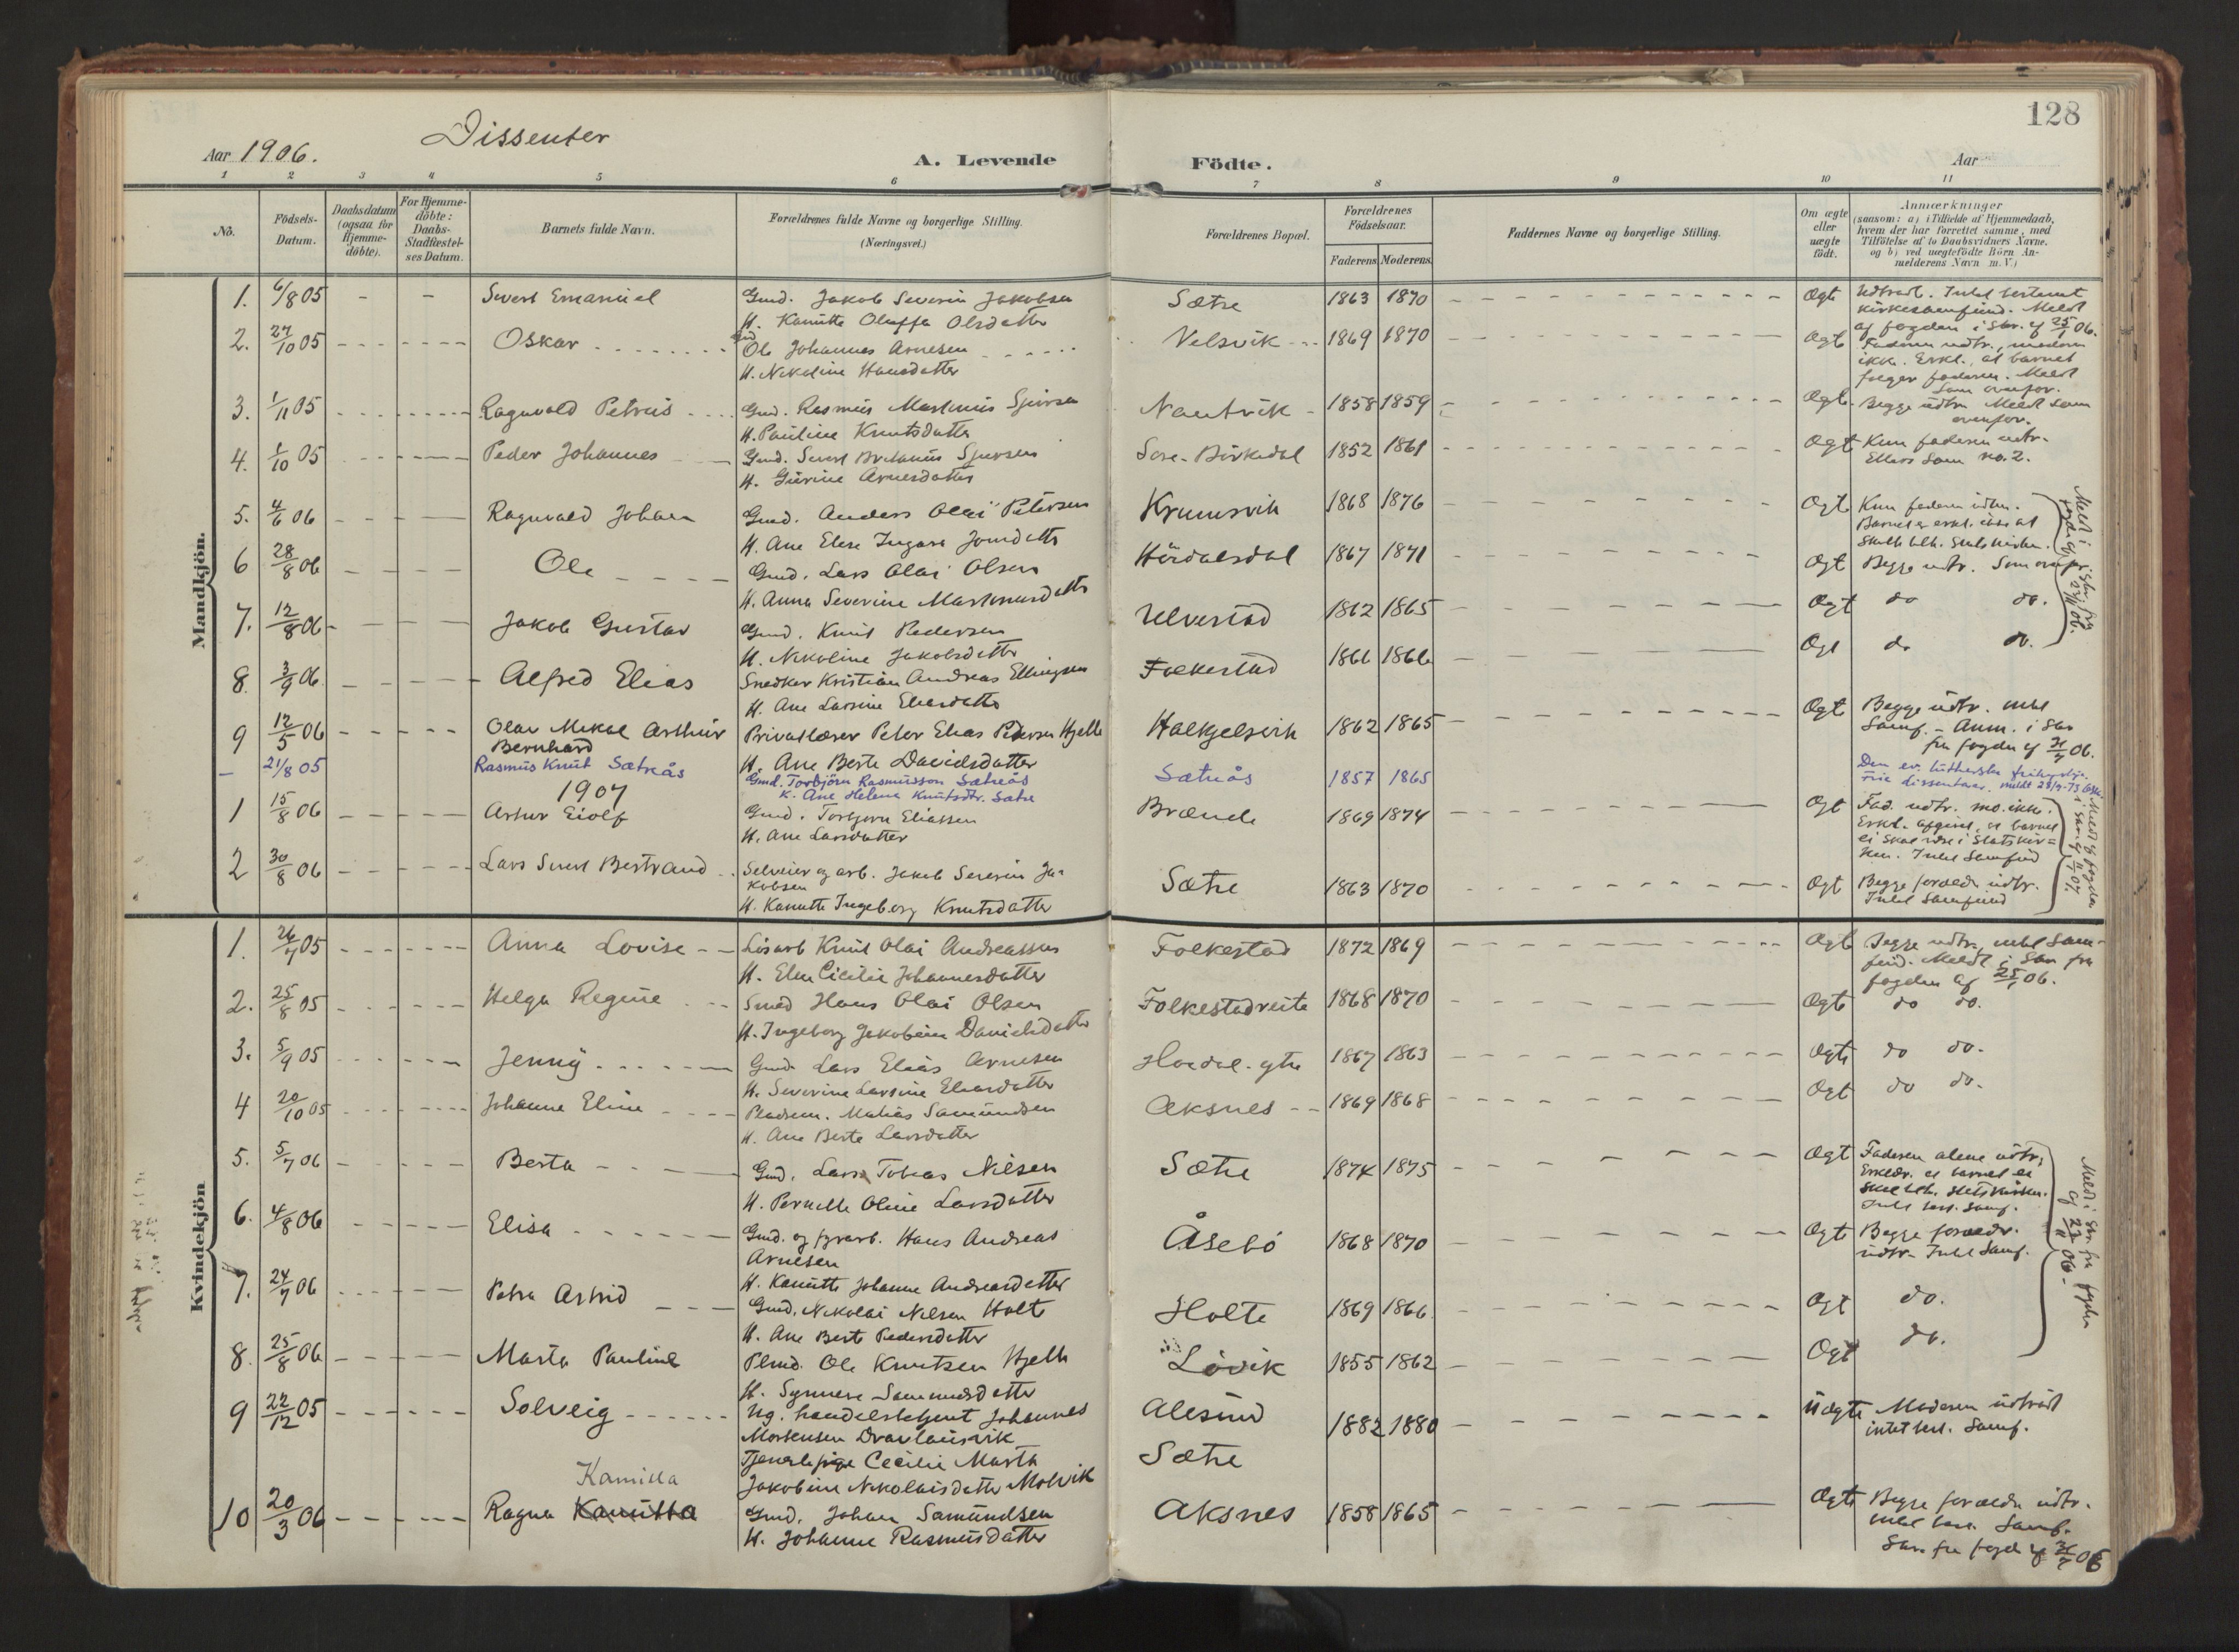 128
Dissenter
Aar 1906.
A. Levende Födte.
Aar
1 2 3 4 5 6 7 8 9 10 11
No. Födsels-Datum. Daabsdatum (ogsaa for Hjemme-döbte). For Hjemme-döbte: Daabs-Stadfæstel-ses Datum. Barnets fulde Navn. Forældrenes fulde Navne og borgerlige Stilling. (Næringsvei.) Forældrenes Bopæl. Forældrenes Födselsaar. Faderens Moderens Faddernes Navne og borgerlige Stilling. Om ægte eller uægte födt. Anmærkninger (saasom: a) i Tilfælde af Hjemmedaab, hvem der har forrettet samme, med Tilföielse af to Daabsvidners Navne. og b) ved uægtefödte Börn An-melderens Navn m. V.)
Mandkjön.
1. 6/8 05 - - Sivert Emanuel Gmd. Jakob Severin Jakobsen Sætre 1863 1870 Ægte Udtraadt. Intet bestemt
H. Kanutte Oluffa Olsdatter kirkesamfund. Meldt
af fogden i skr. af 25/1 06.
2. 27/10 05 Oskar Gmd Ole Johannes Arnesen Velsvik 1869 1870 Ægte Faderen udtr., moderen
H. Nikoline Hansdatter ikke. Erkl., at barnet
følger faderen. Meldt
som ovenfor.
3. 1/11 05 Ragnvald Petrus Gmd. Rasmus Martinus Sjursen Nautvik 1858 1859 Ægte. Begge udtr. Meldt som
H. Pauline Knutsdatter ovenfor.
4. 1/10 05 Peder Johannes Gmd. Sivert Sjursen 1852 1861 Ægt Kun faderen udtr.
H. Gurine Arnesdatter Ellers som no. 2.
5. 4/6 06 Ragnvald Johan Gmd. Anders Olai Petersen Krumsvik 1868 1876 Ægt Kun faderen udtr.
H. Ane Elese Ingara Jonsdatter
6 28/8 06 Ole Gmd. Lars Olai Olsen 1867 1871 Ægt Begge udtr. Som ovenfor
H. Anna Severine Martinusdatter
7. 12/8 06 Jakob Gustav Gmd. Knut Pedersen Ulvestad 1862 1865 Ægt do do.
H. Nikoline Jakobsdatter
8. 3/9 06 Alfred Elias Snedker Kristian Andreas Ellingsen Folkestad 1861 1866 Ægt do do.
H. Ane Larsine Eliasdatter
9 12/5 06 Olav Mikal Arthur Privatlærer Peter Elias Pedersen Hjelle Halkjelsvik 1862 1865 Ægte Begge udtr. intet
Bernhard H. Ane Berte Davidsdatter Samf. - Anm. i skr
fra fogden af 31/7 06.
- 21/8 05 Rasmus Knut Sætreås Gmd. Torbjörn Rasmusson Sætreås Sætreås 1857 1865 Den ev. lutherske frikyrkje.
K. Ane Helena Knutsdtr. Sætre
1907
1 15/8 06 Artur Eiolf Gmd. Torbjørn Eliassen Brænde 1869 1874 Ægt Fad. udtr. mo. ikke.
H. Ane Larsdatter Erkl. afgivet, at barnet
ei skal være i Statskir=
ken. Intet Samfund
2 30/8 06 Lars Sivert Bertrand Selveier og arb. Jakob Severin Ja- Sætre 1863 1870 Ægt Begge forældre udtr.
kobsen Intet Samfund
H. Kanutte Ingeborg Knutsdatter
Kvindekjön
1. 26/7 05 Anna Lovise Lösarb Knut Olai Andreassen Folkestad 1872 1869 Ægte Begge udtr., intet Sam-
H. Elen Cicilie Johannesdatter fund. Meldt i skr fra
fogden af 25/1 06.
2. 25/8 05 Helga Regine Smed Hans Olai Olsen Folkestadreite 1868 1870 Ægte do do.
H. Ingeborg Jakobine Danielsdatter
3. 5/9 05 Jenny Gmd. Lars Elias Arnesen 1867 1863 Ægte do do.
H. Severine Larsine Eliasdatter
4 20/10 05 Johanne Eline Pladsm. Matias Samundsen Aksnes 1869 1868 Ægt do do.
H. Ane Berte Larsdatter
5. 5/7 06 Berta Gmd. Lars Tobias Nilsen Sætre 1874 1875 Ægt Faderen alene udtr.,
H. Pernille Oline Larsdatter Erklær. at barnet ei
skal tilh. Statskirken.
Intet best. Samf.
6. 4/8 06 Elisa Gmd. og fyrarb. Hans Andreas Åsebö 1868 1870 Ægte Begge forældr.
Arnesen udtr. Intet Samf.
H. Kanutte Johanne Andreasdatter
7. 24/7 06 Petra Astrid Gmd. Nikolai Nilsen Holte Holte 1869 1866 Ægt do.
H. Ane Berte Pedersdatter
8. 25/8 06 Marta Pauline Plmd. Ole Knutsen Hjelle Lövik 1855 1862 Ægt do.
H. Synnere Samundsdatter
9 22/12 05 Solveig Ug. handelsbetjent Johannes Alesund 1882 1880 Uægte Moderen udtraadt
Mortensen Dravlausvik intet best. Samf.
Tjenestepige Cecilie Marta Sætre
Jakobine Nikolaisdatter Molvik
Kamilla
10 20/3 06 Ragna Kanutta Gmd. Johan Samundsen Aksnes 1858 1865 Ægte Begge forældre udtr.
H. Johanne Rasmusdatter intet best. Samf.
Skr. fra fogden af 31/7 06